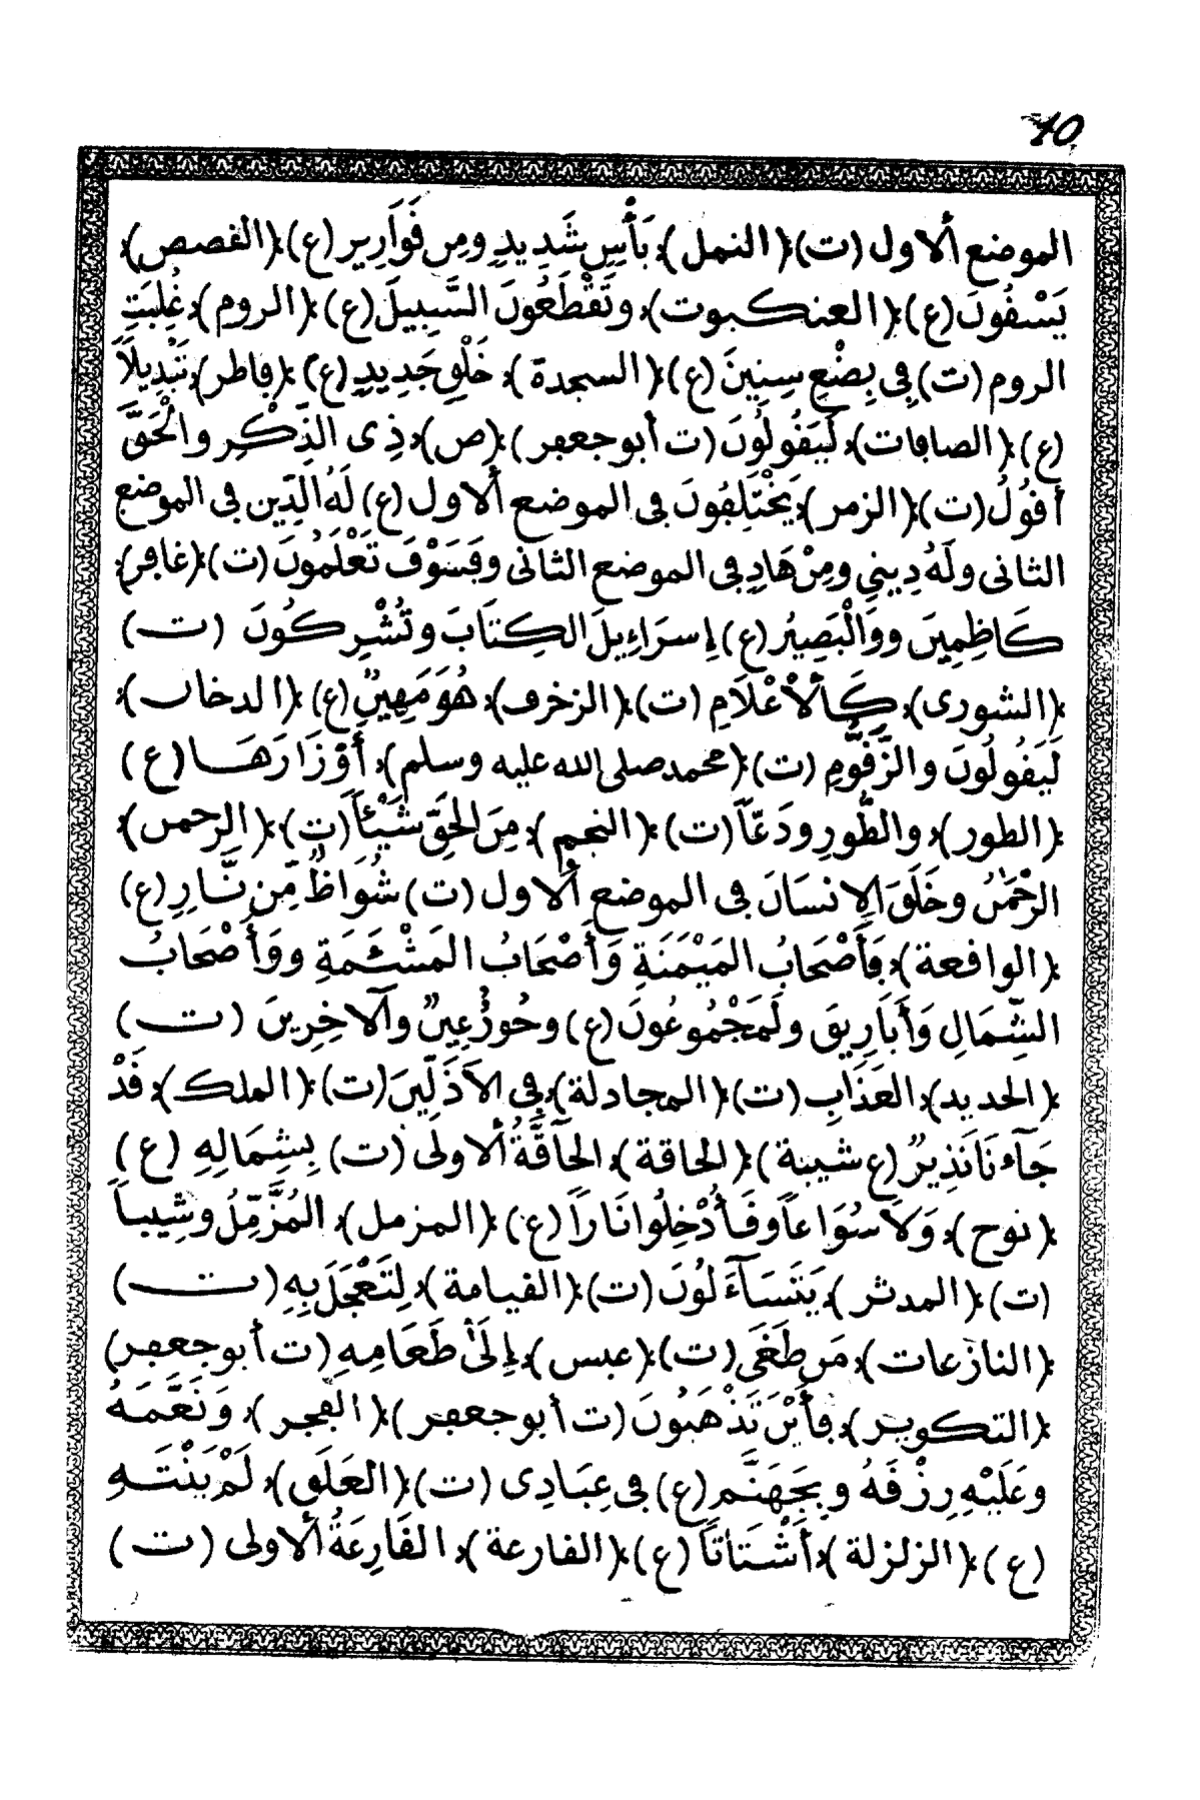 10
الموضع ألاول (ت)؛(النمل)؛ بَأْسٍ شَدِيدٍ ومِن قَوَارِير (ع)؛(القصص)؛
يَسْقُونَ (ع)؛(العنكبوت)؛ وتَقْطَعُونَ السَّبِيلَ (ع)؛(الروم)؛ غُلِبَتِ
الروم (ت) فِي بِضْعِ سِنِينَ (ع)؛(السجدة)؛ خَلْقٍ جَدِيدٍ (ع)؛(فاطر)؛ تَبْدِيلًا
(ع)؛(الصافات)؛ لَيَقُولُونَ (ت أبو جعفر)؛(ص)؛ ذِي الذِّكْرِ والْحَقَّ
أَقُولُ (ت)؛(الزمر)؛ يَخْتَلِفُونَ في الموضع ألاول (ع) لَهُ الدِّين في الموضع
الثاني ولَهُ دِينِي ومِنْ هَادٍ في الموضع الثاني وفَسَوْفَ تَعْلَمُونَ (ت)؛(غافر)؛
كَاظِمِينَ ووَالْبَصِيرُ (ع) إِسرَاءِيلَ الكِتَابَ وتُشْرِكُونَ (ت)
؛(الشورى)؛ كَألأَعْلَامِ (ت)؛(الزخرف)؛ هُوَ مَهِينٌ (ع)؛(الدخان)؛
لَيَقُولُونَ والزَّقُّومِ (ت)؛(محمد صلى الله عليه وسلم)؛ أَوْزَارَهَا (ع)
؛(الطور)؛ والطُّورِ ودَعًّا (ت)؛(النجم)؛ مِنَ الحَقِّ شَيْئًا (ت)؛(الرحمن)؛
الرَّحْمَنُ وخَلَقَ الإنسَانَ في الموضع ألاول (ت) شُوَاظٌ مِّن نَّارٍ (ع)
؛(الواقعة)؛ فَأَصْحَابُ المَيْمَنَةِ وَأَصْحَابُ المَشْـَٔمَةِ ووَأَصْحَابُ
الشِّمَالِ وَأَبَارِيقَ ولَمَجْمُوعُونَ (ع) وحُورٌ عِينٌ وآلاخِرِينَ (ت)
؛(الحديد)؛ العَذَابِ (ت)؛(المجادلة)؛ فِي الأَذَلِّينَ (ت)؛(الملك)؛ قَدْ
جَآءَنَا نَذِيرٌ (ع شيبة)؛(الحاقة)؛ الحَآقَّةُ ألاولى (ت) بِشِمَالِهِ (ع)
؛(نوح)؛ وَلَا سُوَاعًا وفَأُدْخِلُوا نَارًا (ع)؛(المزمل)؛ المُزَّمِّلُ وشِيبًا
(ت)؛(المدثر)؛ يَتَسَآءَلُونَ (ت)؛(القيامة)؛ لِتَعْجَلَ بِهِ (ت)
؛(النازعات)؛ مَن طَغَى (ت)؛(عبس)؛ إِلَى طَعَامِهِ (ت أبو جعفر)
؛(التكوير)؛ فأَيْنَ تَذْهَبُونَ (ت أبو جعفر)؛(الفجر)؛ وَنَعَّمَهُ
وعَلَيْهِ رِزْقَهُ وبِجَهَنَّم (ع) في عِبَادِى (ت)؛(العَلَق)؛ لَمْ يَنْتَهِ
(ع)؛(الزلزلة)؛ أَشْتَاتًا (ع)؛(القارعة)؛ القَارِعَةُ ألاولى (ت)